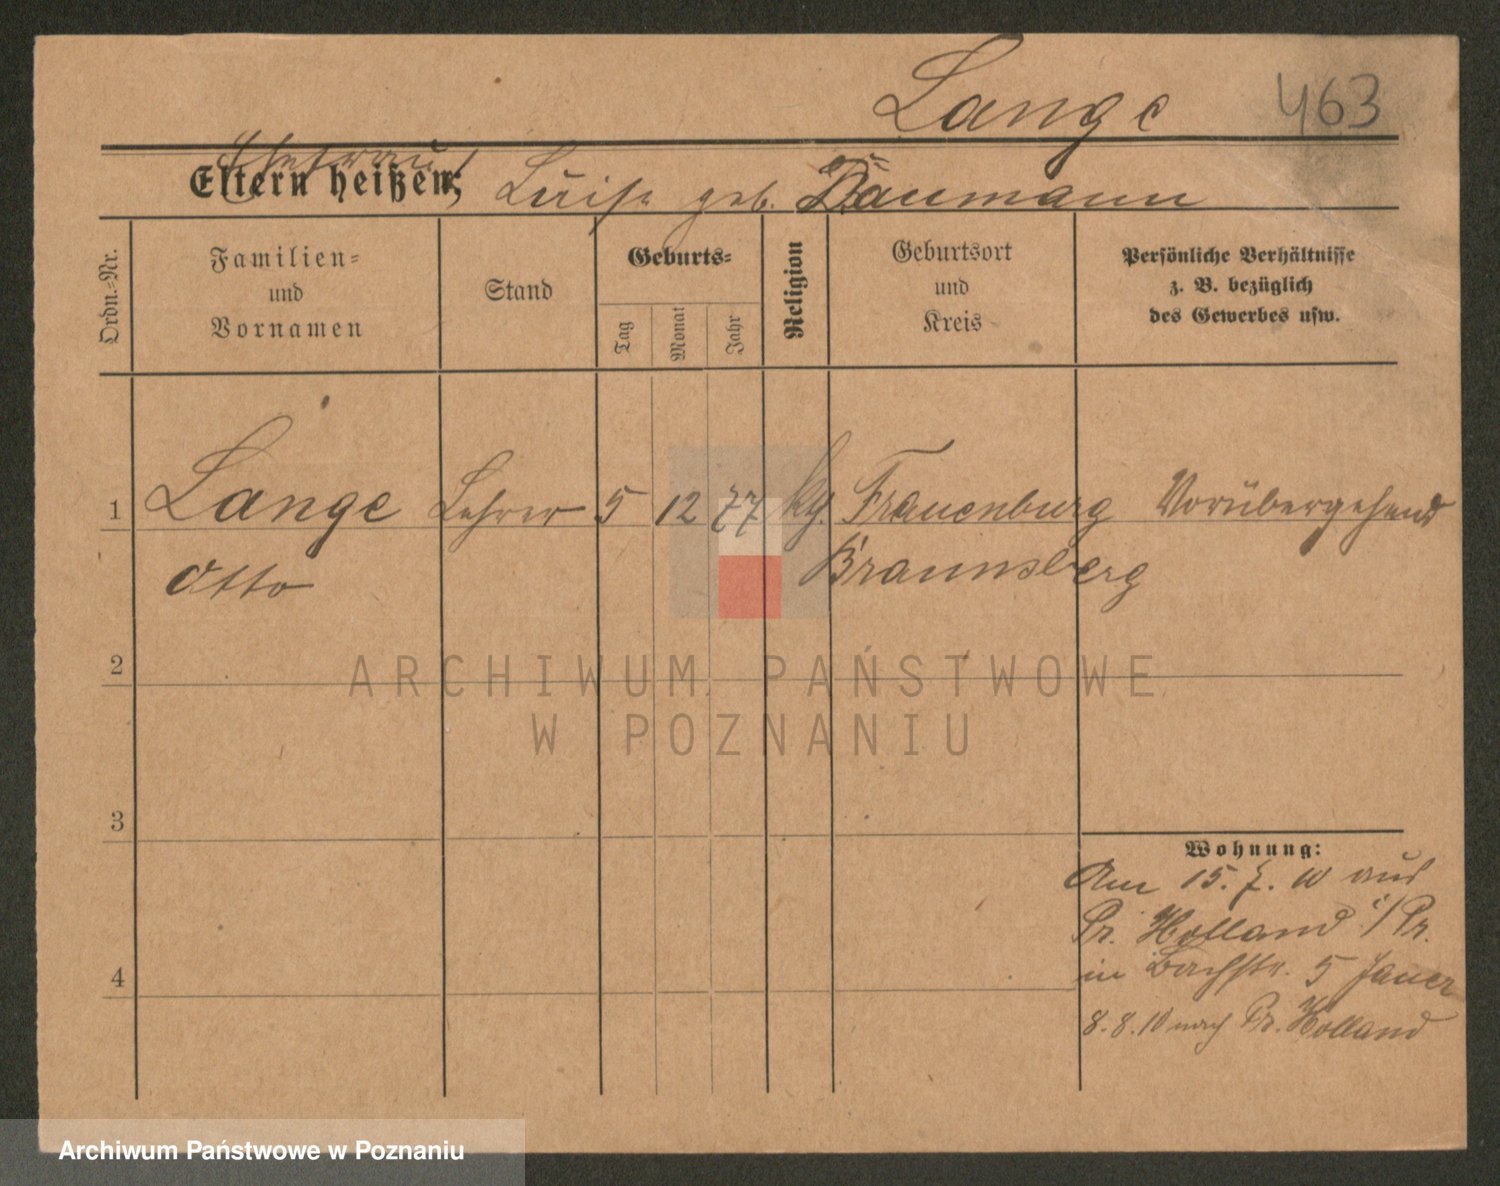 Lange 463
Ehefrau
Eltern heißen: Luise geb. Baumann
Ordn.-Nr.
Familien-
und
Vornamen
Stand
Geburts-
Tag
Monat
Jahr
Religion
Geburtsort
und
Kreis
Persönliche Verhältnisse
z. B. bezüglich
des Gewerbes usw.
1 Lange Lehrer 5 12 77 Frauenburg Vorübergehend
Otto Braunsberg
2
3
4
Wohnung:
Am 15.7.10 aus
Pr. Holland i/Pr.
in Bachstr. 5 Jauer
8.8.10 nach Pr. Holland
ARCHIWUM PAŃSTWOWE
W POZNANIU
Archiwum Państwowe w Poznaniu